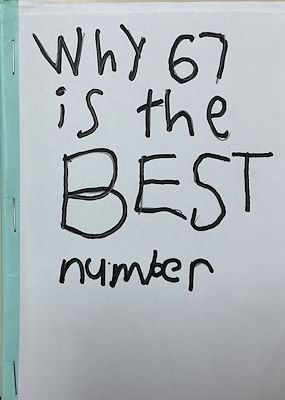 Why 67
is the
BEST
number